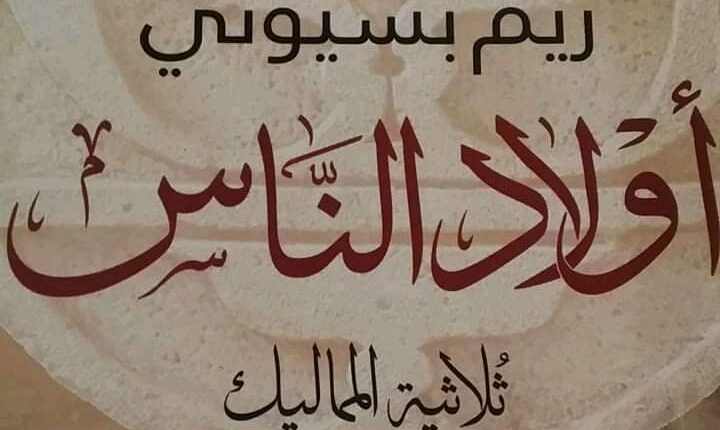 ريم بسيوني
أولاد النَّاس
ثُلاثية المماليك